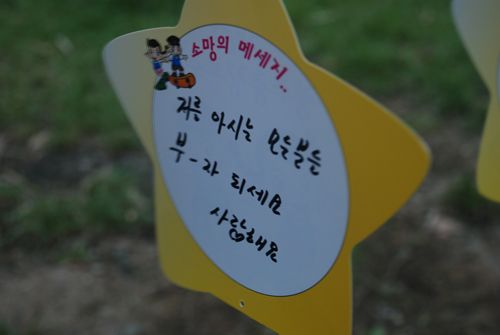 소망의 메세지..
저를 아시는 모든분들
부-자 되세요
사랑해요